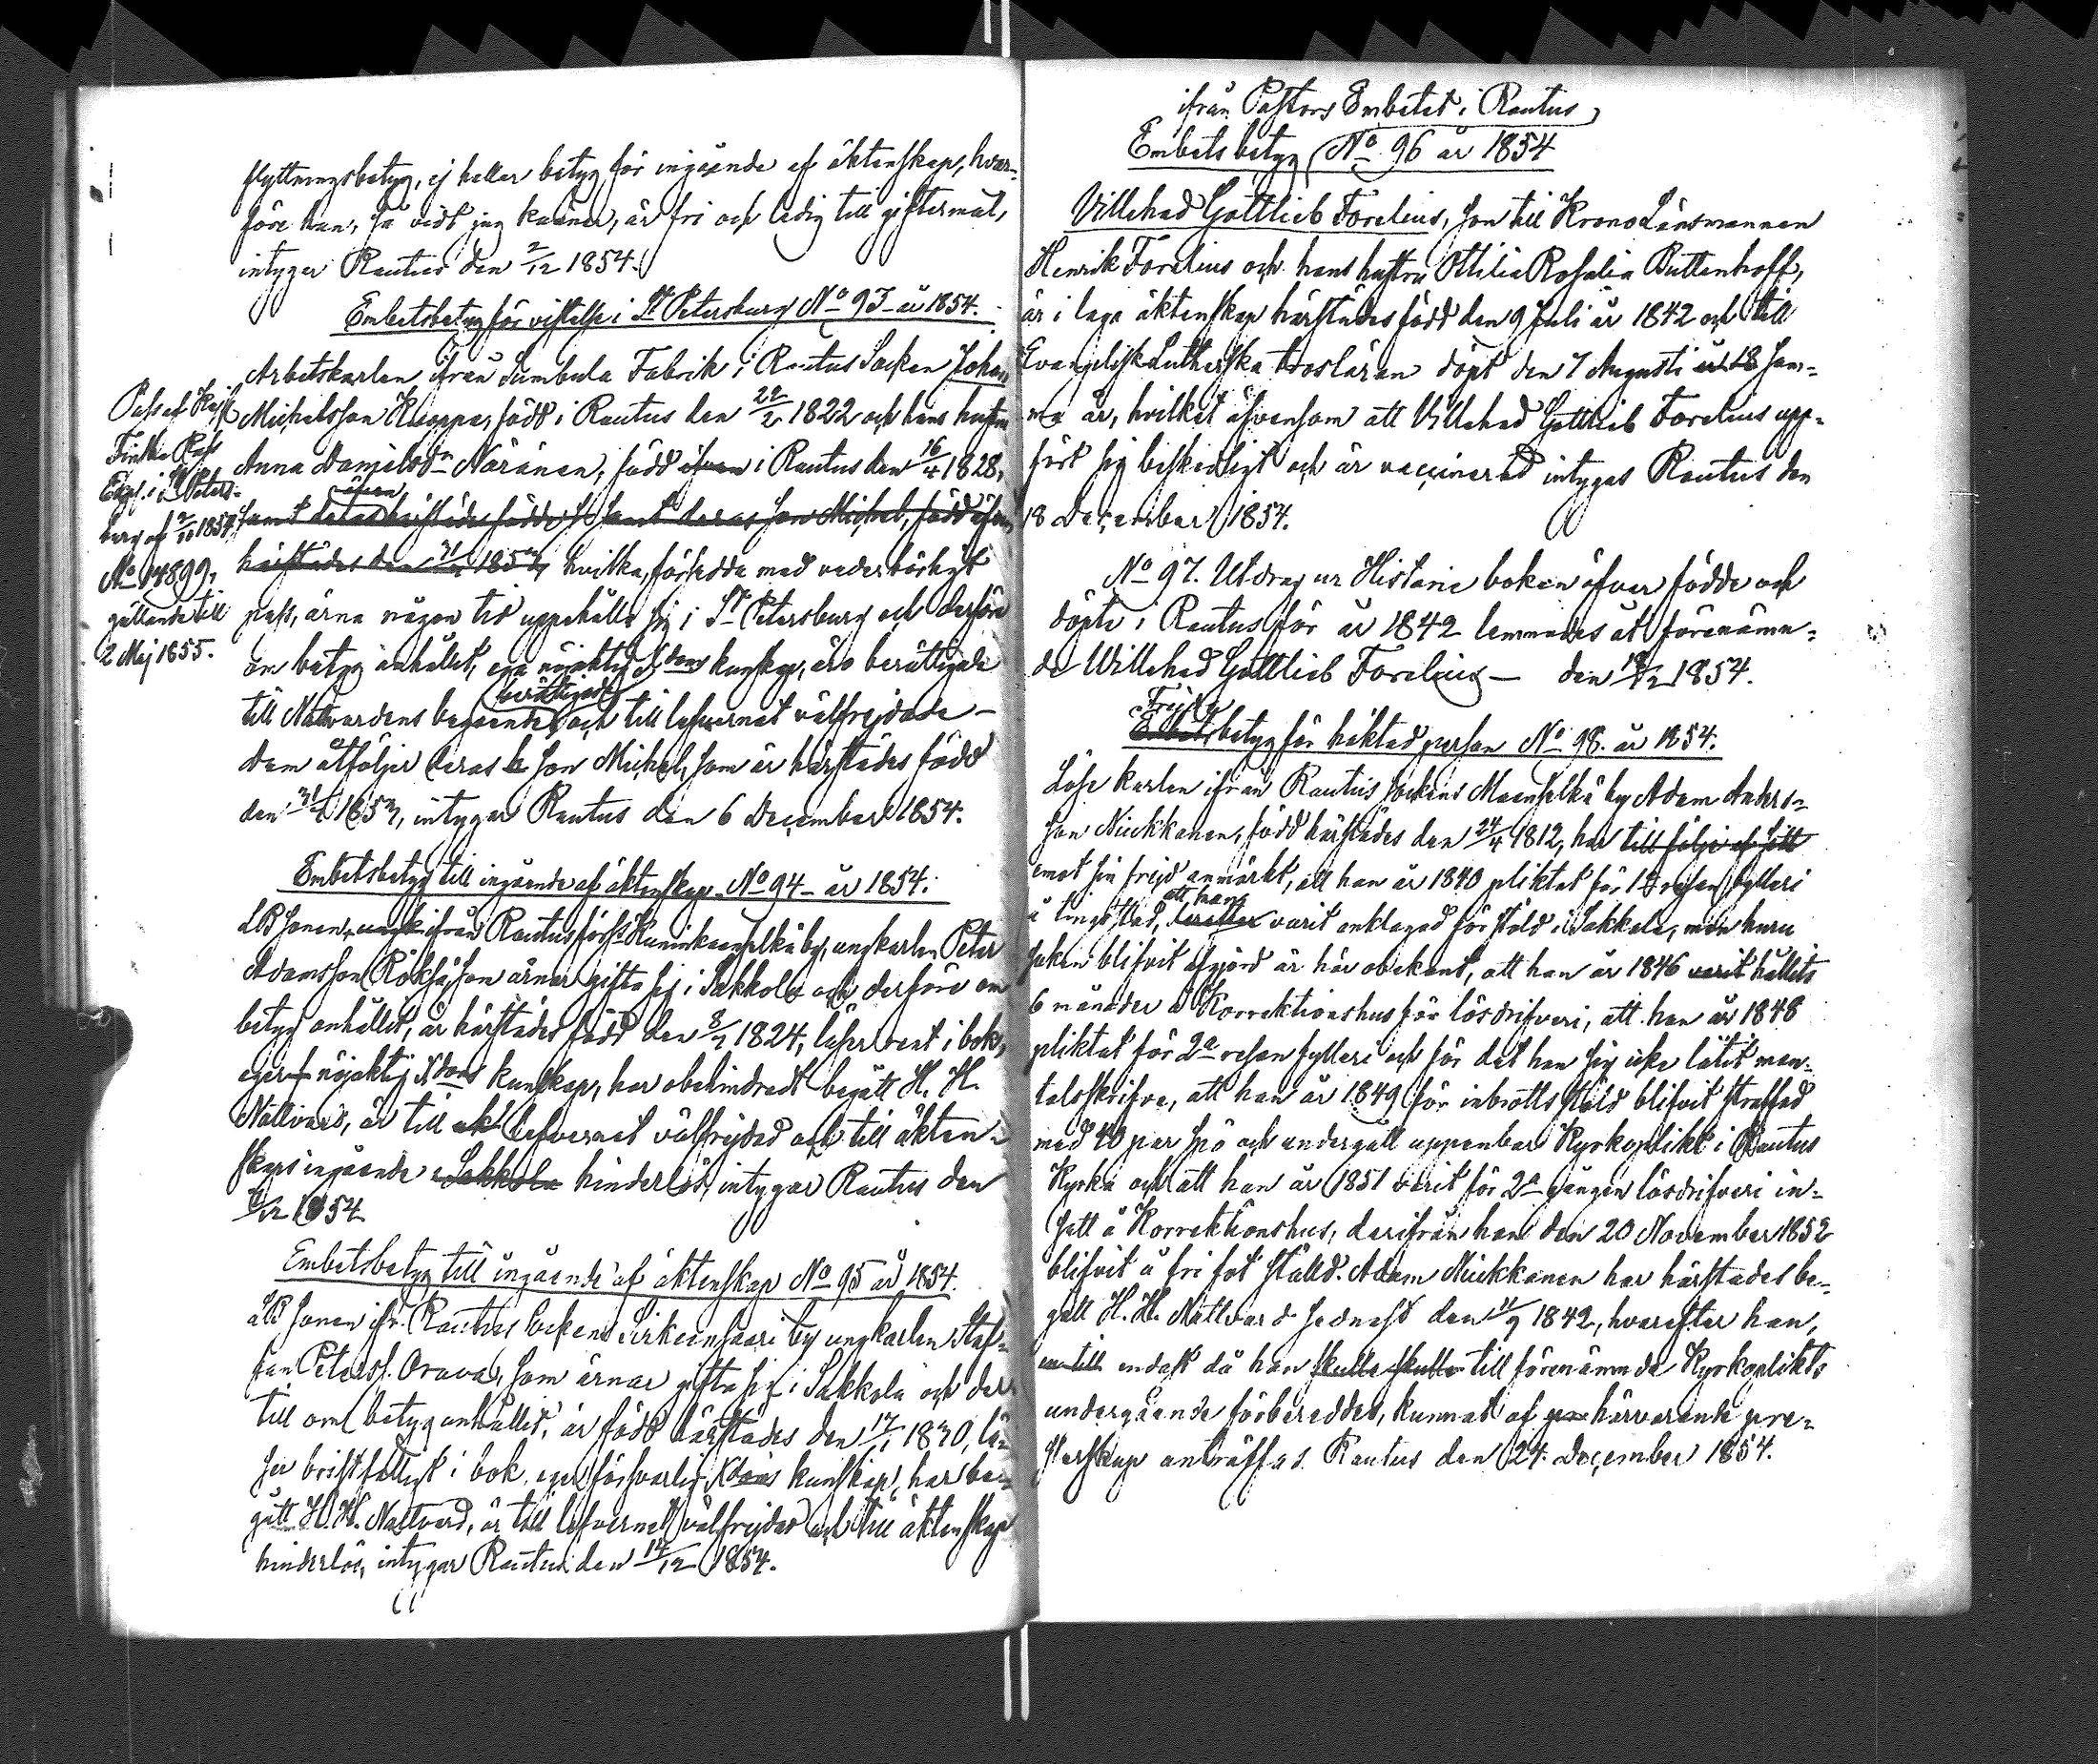 flyttningsbetyg, ej heller betyg för ingående af äktenskap, hvar-
före han, så vidt jag känner, är fri och ledig till giftermål,
intygar Rautus den 2/12 1854.
Embetsbetyg för vistelse i St Petersburg No 93 år 1854.
Arbetskarlen ifrån Sumbula Fabrik i Rautus Socken Johan
Michelsson Kaappa, född i Rautus den 22/2 1822 och hans hustru
Anna Danielsdr Näränen, född äfven i Rautus den 16/4 1828,
äfven
samt deras härstädes födde samt deras son Michel, född äfven
härstädes den 31/1 1853, hvilka, försedda med vederbörligt
pass, ärna någon tid uppehålla sig i St Petersburg och derföre
om betyg anhållit, ega nöjaktig Xdoms kunskap, äro berättigade
berättigade
till Nattvardens begående och till lefvernet välfrejdade –
dem åtföljer deras son Michel, som är härstädes född
den 31/1 1853, intygar Rautus den 6 December 1854.
Pass af Kejs.
Finska Pass
Exp. i St Peters-
burg af 2/11 1854,
No 14899,
gällande till
2 Maj 1855.
Embetsbetyg till ingående af äktenskap No 94 år 1854.
LBsonen, ungk ifrån Rautus förs. Kuninkaanselkä by, ungkarlen Peter
Adamsson Röksä, som ärnar gifta sig i Sakkola och derföre om
betyg anhållit, är härstädes född den 8/2 1824, läser rent i bok,
eger nöjaktig Xdoms kunskap, har obehindradt begått H. H.
Nattvard, är till lefvernet välfrejdad och till äkten-
skaps ingående Sakkola hinderlös, intygar Rautus den
6/12 1854.
Embetsbetyg till ingående af äktenskap No 95 år 1854.
LBsonen ifr. Rautus Sockens Sirkiensaari by ungkarlen Staf-
fan Peterss. Orava, som ärnar gifta sig i Sakkola och der
till om betyg anhållit, är född härstädes den 17/1 1830, lä-
ser bristfälligt i bok, eger försvarlig Xdoms kunskap, har be-
gått H. H. Nattvard, är till lefvernet välfrejdad och till äktenskap
hinderlös, intygar Rautus den 14/12 1854.
ifrån Pastors Embetet i Rautus
Embetsbetyg No 96 år 1854
Villehad Gottlieb Forelius, son till KronoLänsmannen
Henrik Forelius och hans hustru Ottilia Rosalia Buttenhoff,
är i laga äktenskap härstädes född den 9 Juli år 1842 och till
Evangelisk Lutherska trosläran döpt den 7 Augusti år 18 sam-
ma år, hvilket äfvensom att Villehad Gottlieb Forelius upp-
fört sig beskedligt och är vaccinerad intygas Rautus den
18 December 1854.
No 97. Utdrag ur Historie boken öfver födde och
döpte i Rautus för år 1842 lemnades åt förenämn-
de Willehad Gottlieb Forelius – den 18/12 1854.
Frejde
Embetsbetyg för häktad person No 98. år 1854.
Löse karlen ifrån Rautus sockens Maanselkä by Adam Anders-
son Niukkanen, född härstädes den 24/4 1812, har till följe af sitt
emot sin frejd anmärkt, att han år 1840 pliktat för 1a resan fylleri
att han
å tingsstad, derefter varit anklagad för stöld i Sakkola, men huru
saken blifvit afgjord är här obekant, att han år 1846 varit hållits
6 månader å Korrektionshus för lösdrifveri, att han år 1848
pliktat för 2a resan fylleri och för det han sig icke låtit man-
talsskrifva, att han år 1849 för inbrotts stöld blifvit straffad
med 40 par spö och undergått uppenbar Kyrkoplikt i Rautus
Kyrka och att han år 1851 varit för 2a gången lösdrifveri in-
satt å Korrektionshus, derifrån han den 20 November 1852
blifvit å fri fot ställd. Adam Niukkanen har härstädes be-
gått H. H. Nattvard sednast den 11/9 1842, hvarefter han,
endast då han skulle skulle till förenämnde Kyrkoplikts
undergående förberedder, kunnat af härvarande pre-
sterskap anträffas. Rautus den 24 December 1854.